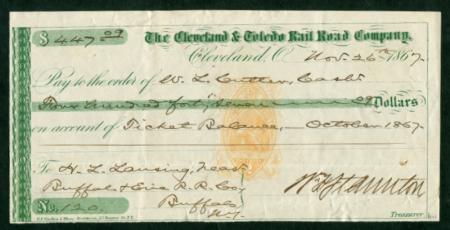 $447.09
The Cleveland & Toledo Rail Road Company.
Cleveland, O Nov. 26th 1867.
Pay to the order of W. L. Cutter, Cashr
Four hundred forty seven 09 Dollars
on account of Ticket Balance, October 1867.
To H. L. Lansing,
Buffalo & Erie R. R. Co
Buffalo
N.Y.
No. 120.
Treasurer